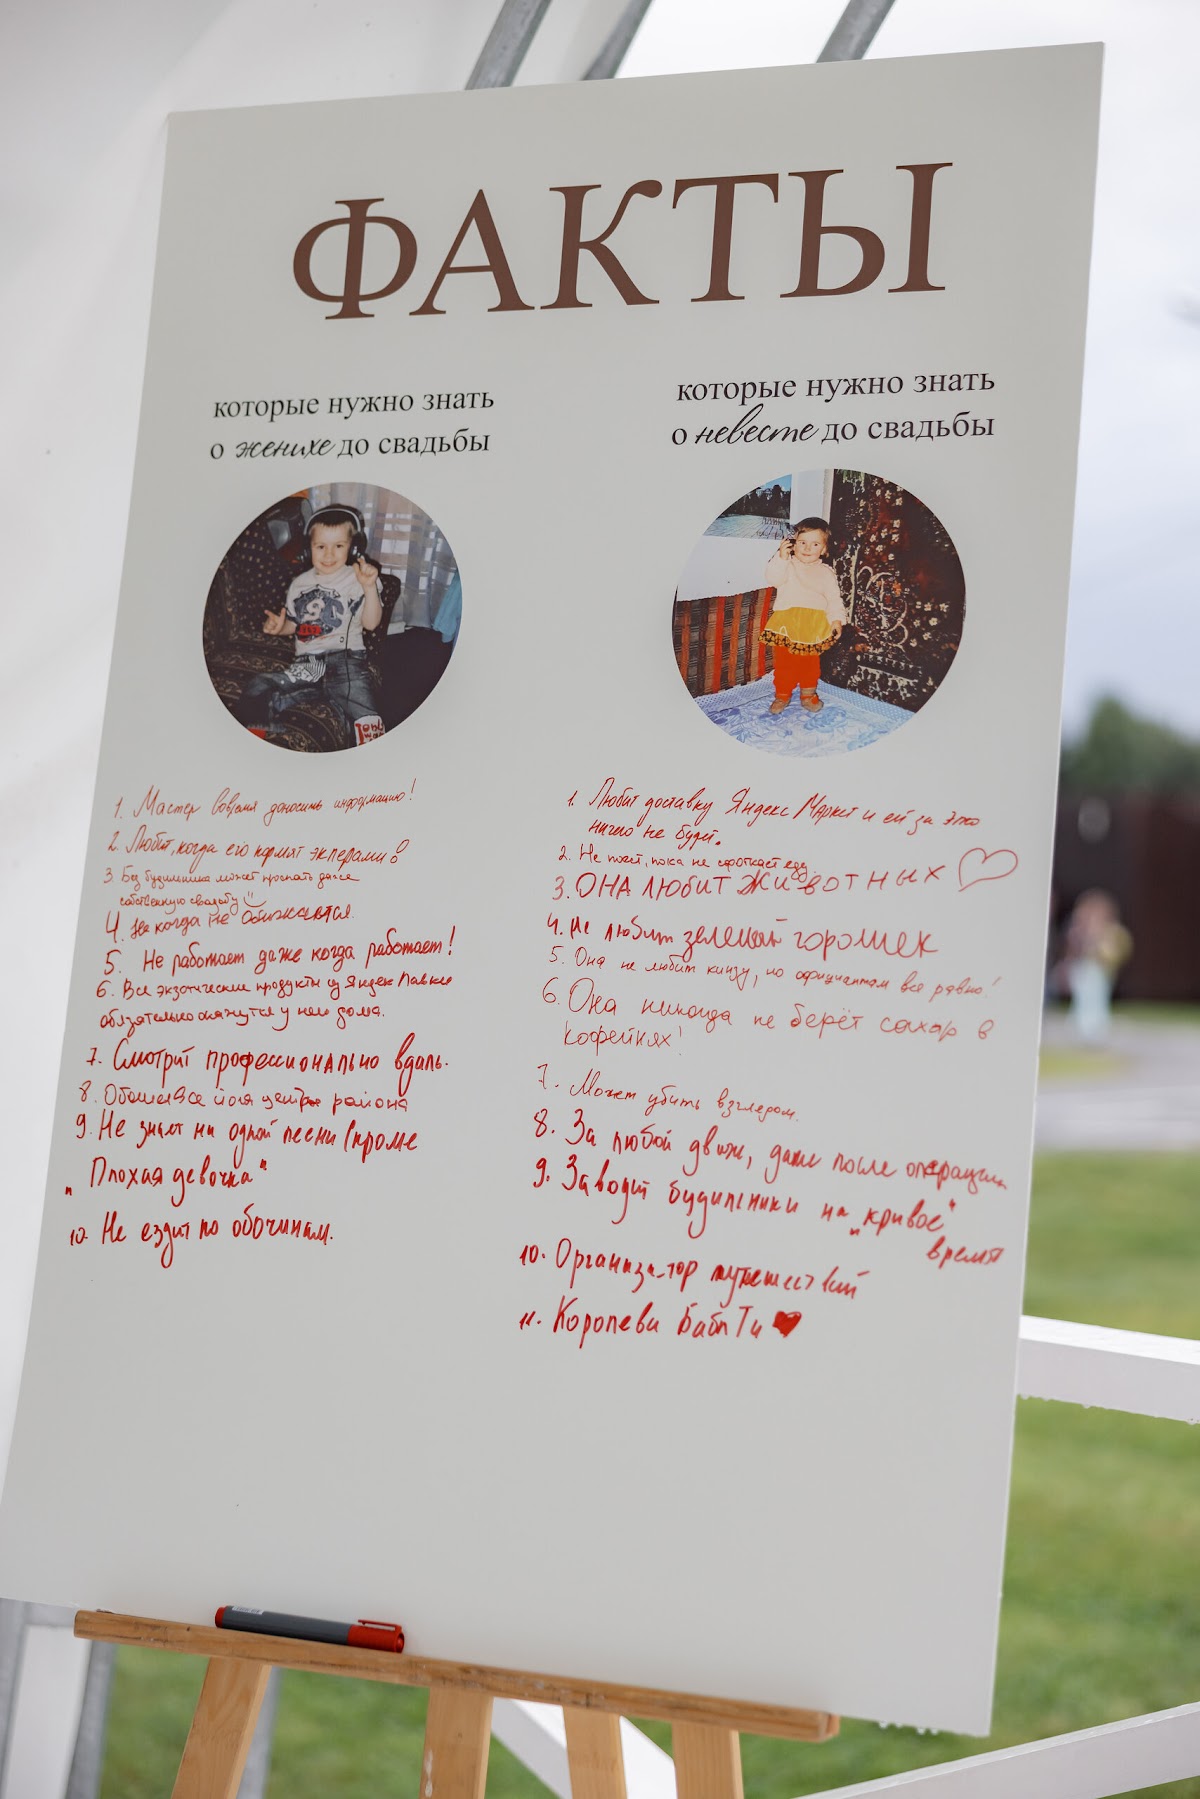 ФАКТЫ
которые нужно знать
о женихе до свадьбы
1. Мастер вовремя доносить информацию!
2. Любит, когда его кормят эклерами!
3. Без будильника может проспать даже
собственную свадьбу
4. Ни когда не обижается.
5. Не работает даже когда работает!
6. Все экзотические продукты из Яндекс Лавки
обязательно окажутся у него дома.
7. Смотрит профессионально вдаль.
8. йога центры района
9. Не знает ни одной песни (кроме
"Плохая девочка"
10. Не ездит по обочинам.
которые нужно знать
о невесте до свадьбы
1. Любит доставку Яндекс Маркет и ей за это
ничего не будет.
2. Не поест, пока не сфоткает еду
3. ОНА ЛЮБИТ ЖИВОТНЫХ
4. Не любит зеленый горошек
5. Она не любит кинзу, но официантам все равно!
6. Она никогда не берёт сахар в
кофейнях!
7. Может убить взглядом.
8. За любой движ, даже после операции
9. Заводит будильники на "кривое"
время
10. Организатор путешествий
11. Королева Бабл Ти